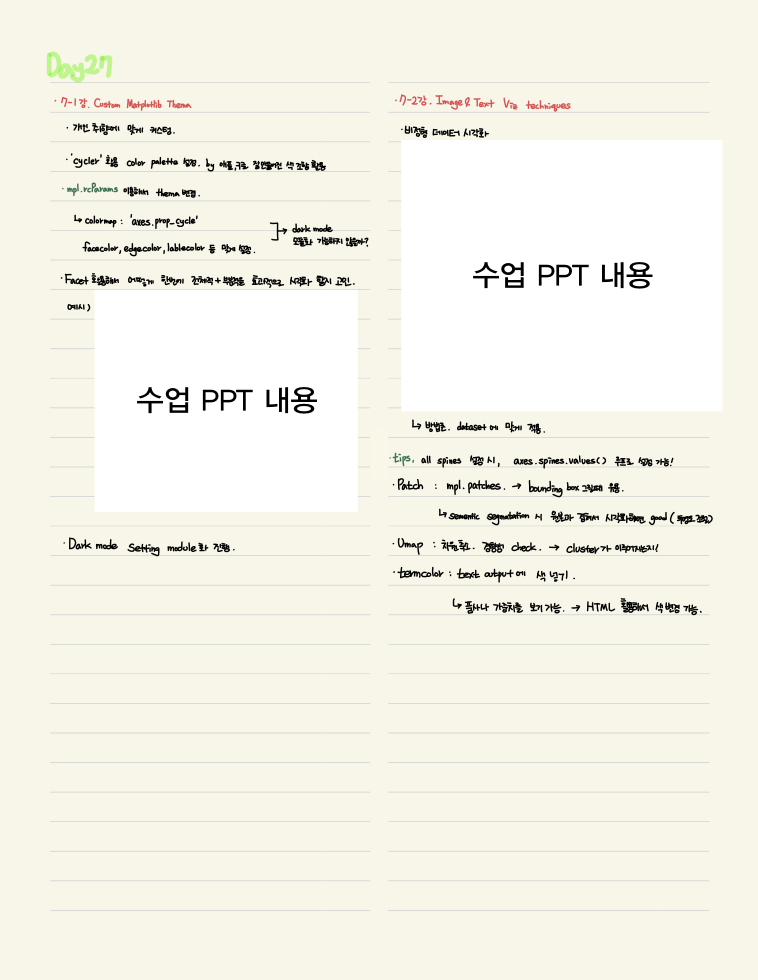 Day27
· 7-1강. Custom Matplotlib Thema
· 개인 취향에 맞게 커스텀.
· 'cycler' 활용 color palette 설정. by 애플, 구글 잘만들어진 색 조합 활용
· mpl.rcParams 이용해서 thema 변경.
↳ colormap : 'axes.prop_cycle'
facecolor, edgecolor, lablecolor 등 맞게 설정.
→ dark mode
모듈화 가능하지 않을까?
· Facet 활용해서 어떻게 한번에 전체적 + 부분적을 효과적으로 시각화 할지 고민.
예시)
수업 PPT 내용
· Dark mode Setting module화 진행.
· 7-2강. Image & Text Viz techniques
· 비정형 데이터 시각화
수업 PPT 내용
↳ 방법론. dataset에 맞게 적용.
· tips. all spines 설정 시, axes.spines.values() 루프로 설정 가능!
· Patch : mpl.patches. → bounding box 그릴때 유용.
↳ semantic segmatation 시 원본과 겹쳐서 시각화하면 good (투명도 조절)
· Umap : 차원축소. 경향성 check. → cluster가 이루어지는지!
· termcolor : text output에 색 넣기.
↳ 품사나 가중치를 보기 가능. → HTML 활용해서 색 변경 가능.